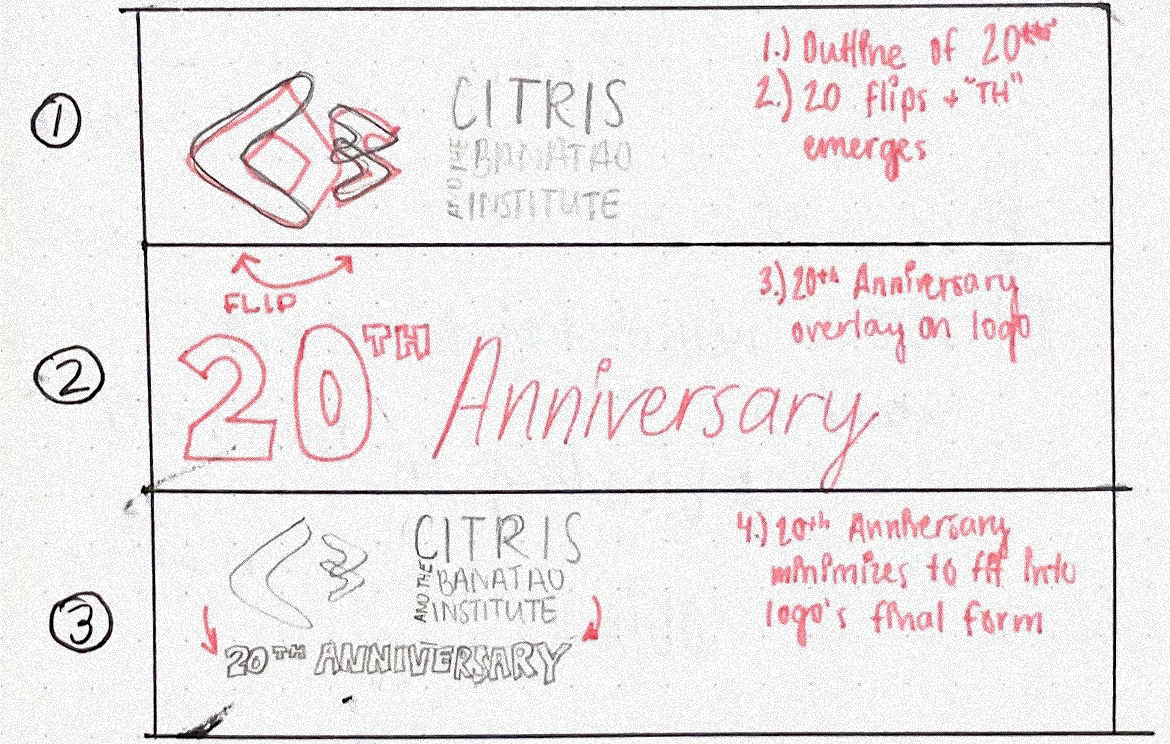 1
CITRIS
AND THE BANATAO
INSTITUTE
1.) Outline of 20
2.) 20 flips + "TH"
emerges
2
FLIP
20TH Anniversary
3.) 20th Anniversary
overlay on logo
3
CITRIS
AND THE BANATAO
INSTITUTE
20TH ANNIVERSARY
4.) 20th Anniversary
minimizes to fit into
logo's final form